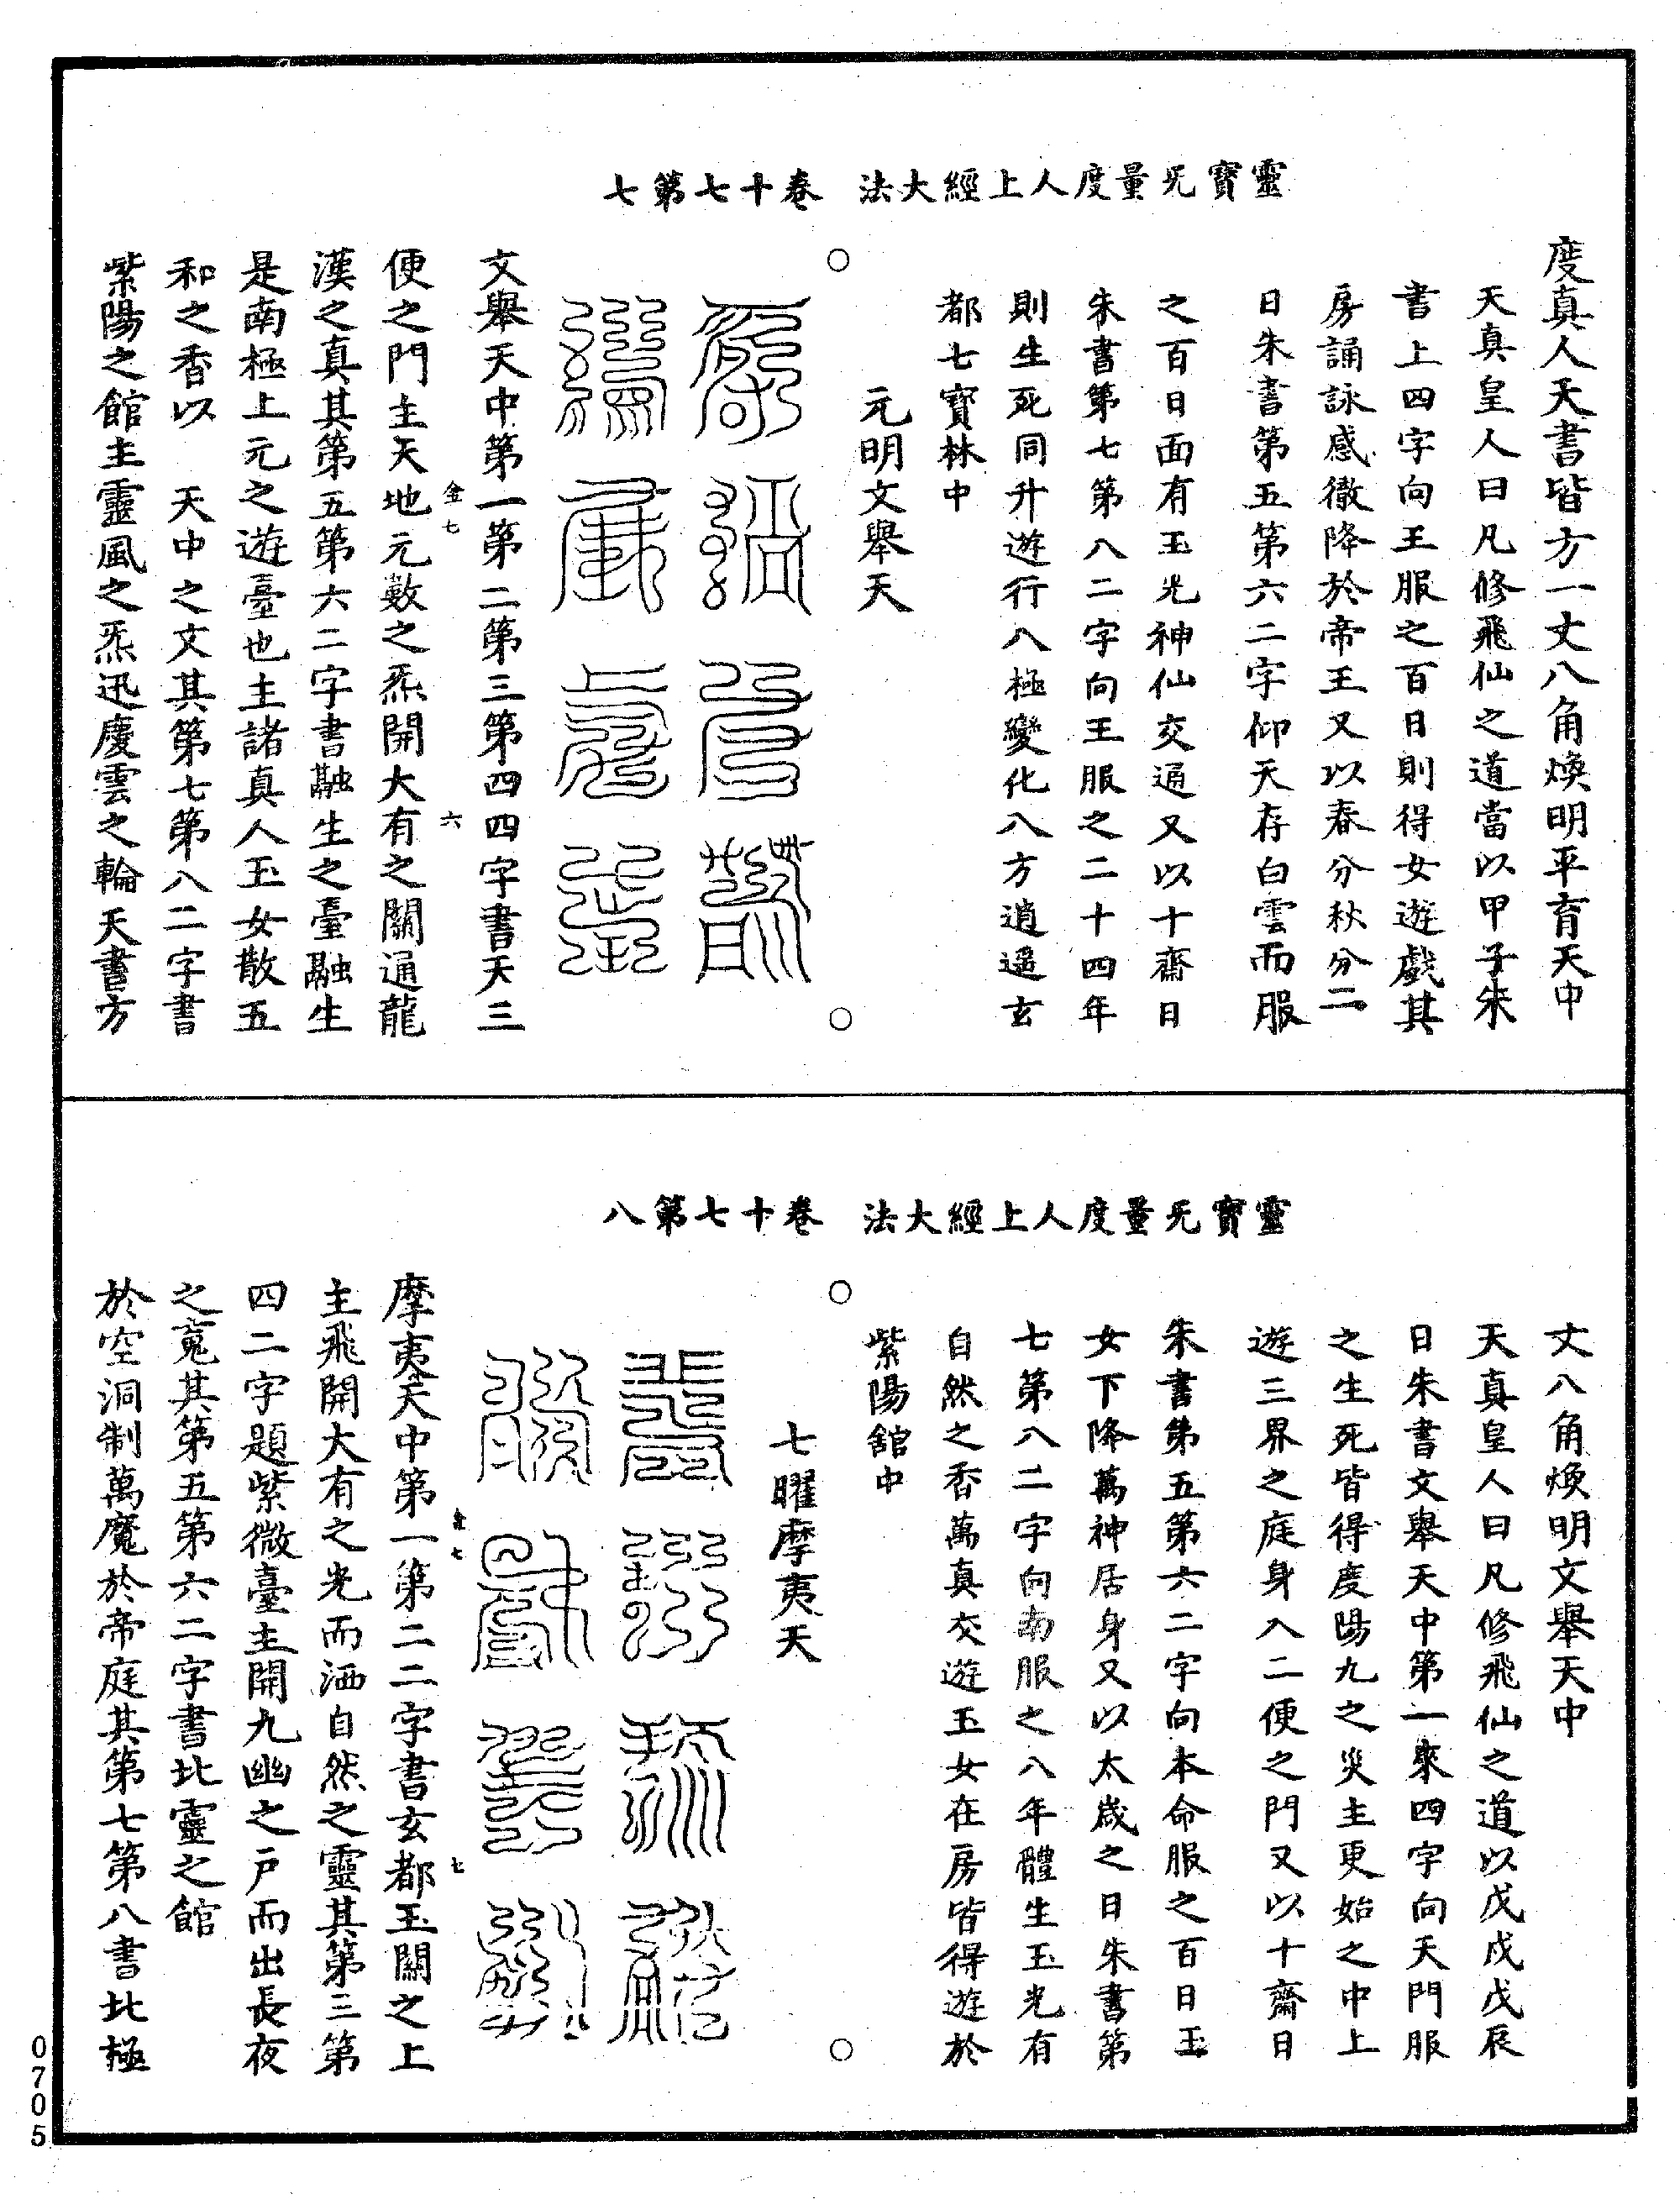 靈寶无量度人上經大法 卷十七第七
度真人天書皆方一丈八角煥明平育天中
天真皇人曰凡修飛仙之道當以甲子朱
書上四字向王服之百日則得女遊戲其
房誦詠感徹降於帝王又以春分秋分二
日朱書第五第六二字仰天存白雲而服
之百日面有玉光神仙交通又以十齋日
朱書第七第八二字向王服之二十四年
則生死同升遊行八極變化八方逍遥玄
都七寶林中
元明文舉天
文舉天中第一第二第三第四四字書天三
便之門主天地元數之炁開大有之關通龍
金七
六
漢之真其第五第六二字書融生之臺融生
是南極上元之遊臺也主諸真人玉女散五
和之香以 天中之文其第七第八二字書
紫陽之館主靈風之炁迅慶雲之輪天書方
靈寶无量度人上經大法 卷十七第八
丈八角煥明文舉天中
天真皇人曰凡修飛仙之道以戊戌戊辰
日朱書文舉天中第一來四字向天門服
之生死皆得度陽九之災主更始之中上
遊三界之庭身入二便之門又以十齋日
朱書第五第六二字向本命服之百日玉
女下降萬神居身又以太歲之日朱書第
七第八二字向南服之八年體生玉光有
自然之香萬真交遊玉女在房皆得遊於
紫陽舘中
七曜摩夷天
摩夷天中第一第二二字書玄都玉闕之上
金七
七
主飛開大有之光而洒自然之靈其第三第
四二字題紫微臺主開九幽之户而出長夜
之䰟其第五第六二字書北靈之館
於空洞制萬魔於帝庭其第七第八書北極
0705